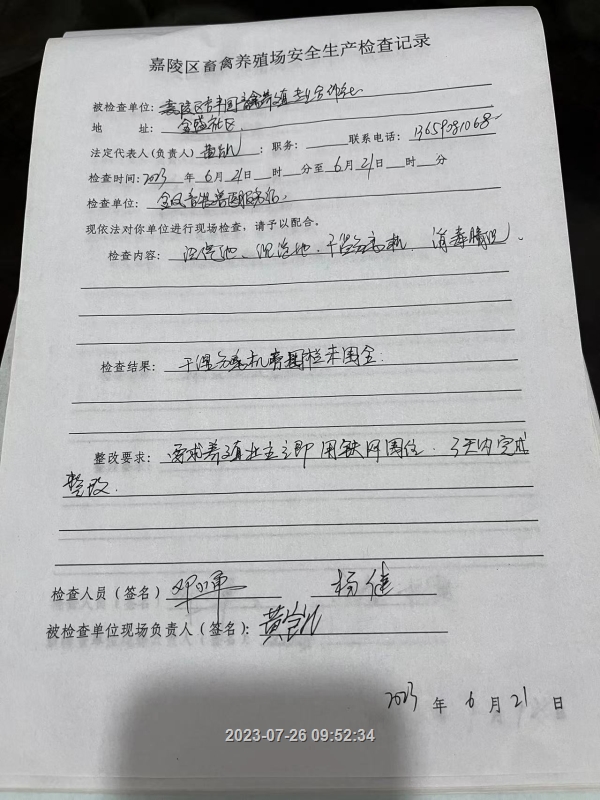 嘉陵区畜禽养殖场安全生产检查记录
被检查单位：嘉陵区 养殖专业合作社
地 址：金盛社区
法定代表人(负责人) 黄凯 ；职务： 联系电话：13659081068
检查时间：2023 年 6 月 21 日 时 分至 6 月 21 日 时 分
检查单位： 畜牧兽医服务站。
现依法对你单位进行现场检查，请予以配合。
检查内容：沼气池、沉淀池、干湿分离机、消毒
检查结果：干湿分离机 围栏未围全：
整改要求：要求养殖业主立即用铁网围住，3天内完成
整改.
检查人员（签名） 邓 军 杨健
被检查单位现场负责人（签名）：黄凯
2023 年 6 月 21 日
2023-07-26 09:52:34